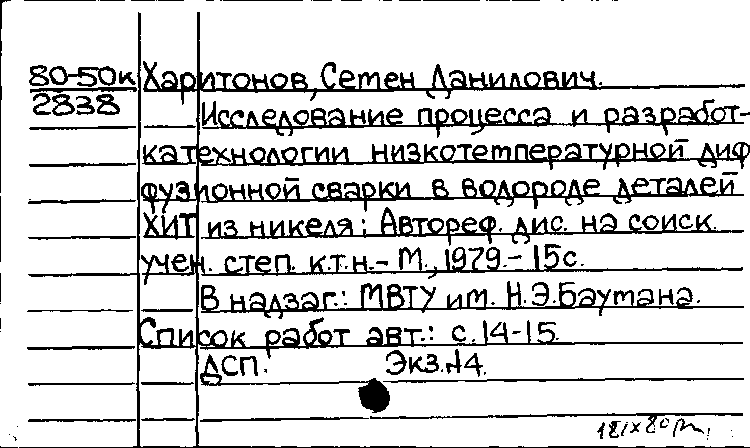 80-50к Харитонов, Семен Данилович.
2838 Исследование процесса и разработ-
ка технологии низкотемпературной диф
фузионной сварки в водороде деталей
ХИТ из никеля: Автореф. дис. на соиск.
учен. степ. к.т.н.- М., 1979.- 15с.
В надзаг.: МВТУ им. Н.Э.Баумана.
Список работ авт.: с.14-15.
ДСП. Экз.№4.